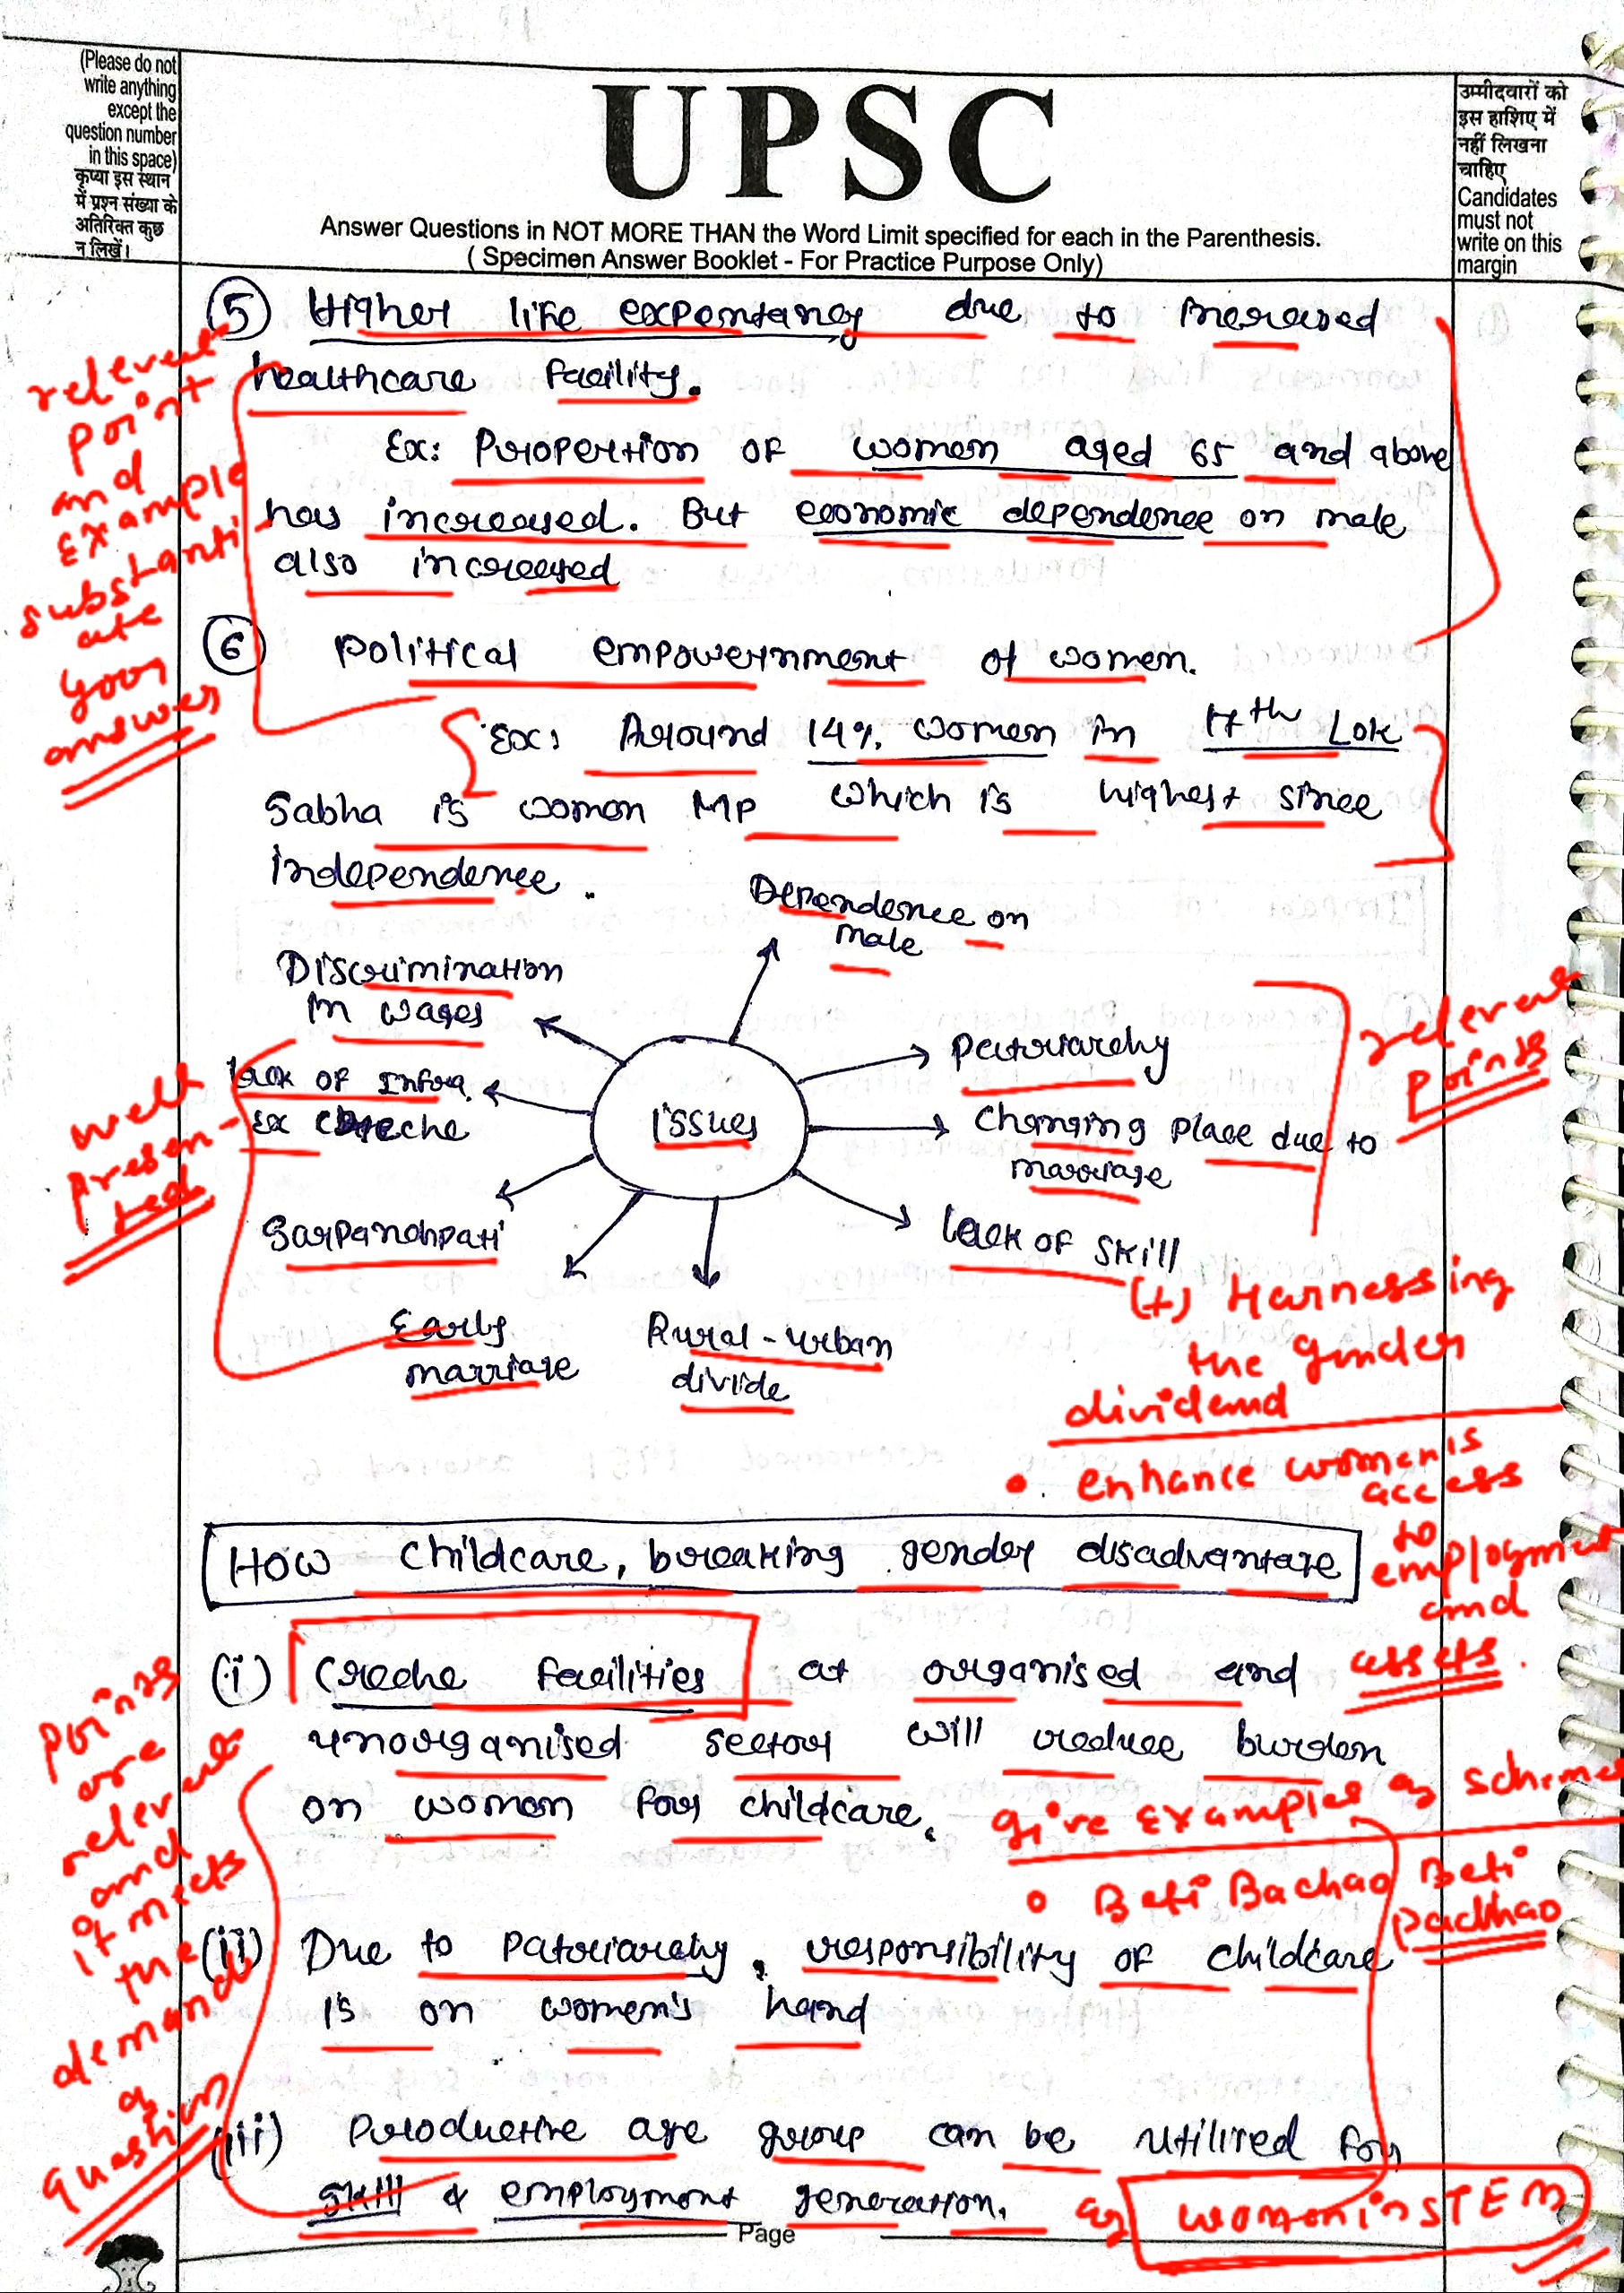 (Please do not
write anything
except the
question number
in this space)
कृप्या इस स्थान
में प्रश्न संख्या के
अतिरिक्त कुछ
न लिखें।
UPSC
Answer Questions in NOT MORE THAN the Word Limit specified for each in the Parenthesis.
( Specimen Answer Booklet - For Practice Purpose Only)
उम्मीदवारों को
इस हाशिए में
नहीं लिखना
चाहिए
Candidates
must not
write on this
margin
5 Higher life expentancy due to increased
healthcare facility.
Ex: Propertion of women aged 65 and above
has increased. But economic dependence on male
also increased
relevent
point
and
Example
substanti
ate
your
answer
6 Political empowernment of women.
Ex: Around 14% women in 17th Lok
Sabha is women MP which is highest since
independence.
Dependence on
male
Discrimination
in wages
Lack of Infra.
Ex creche
Sarpanchpati
Early
marriage
Rural-urban
divide
issues
Patriarchy
Changing place due to
marriage
Lack of skill
relevent
points
well
presen-
ted
(+) Harnessing
the gender
dividend
• enhance women's
access
to
employment
and
assets.
How childcare, breaking gender disadvantage
(i) Creche facilities at organised and
unorganised sector will reduce burden
on women for childcare.
give Examples of schemes
• Beti Bachao Beti
padhao
(ii) Due to Patriarchy, responsibility of childcare
is on women's hand
(iii) Productive age group can be utilised for
skill & employment generation.
eg women in STEM
points
are
relevent
and
it meets
the
demand
of
question
Page